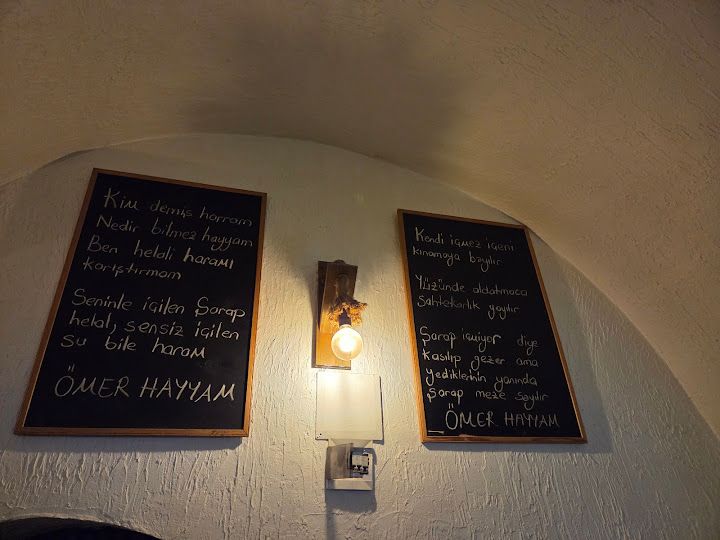 Kim demiş harram
Nedir bilmez hayyam
Ben helali haramı
karıştırmam
Seninle içilen Şarap
helal, sensiz içilen
su bile haram
ÖMER HAYYAM
Kendi içmez içeni
kınamaya bayılır
Yüzünde aldatmaca
sahtekarlık yayılır
Şarap içmiyor diye
kasılıp gezer ama
yediklerinin yanında
Şarap meze sayılır
ÖMER HAYYAM